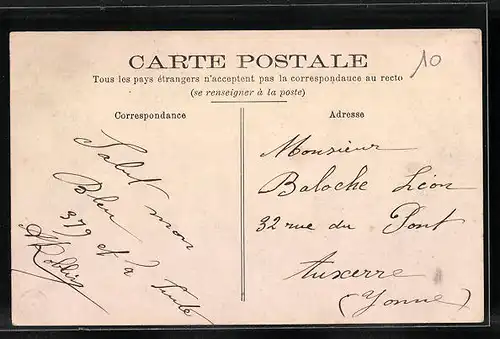 CARTE POSTALE
10
Tous les pays étrangers n'acceptent pas la correspondance au recto
(se renseigner à la poste)
Correspondance
Salut mon
Bleu
379 et la
fuite
Adresse
Monsieur
Baloche Léon
32 rue du Pont
Auxerre
(Yonne)